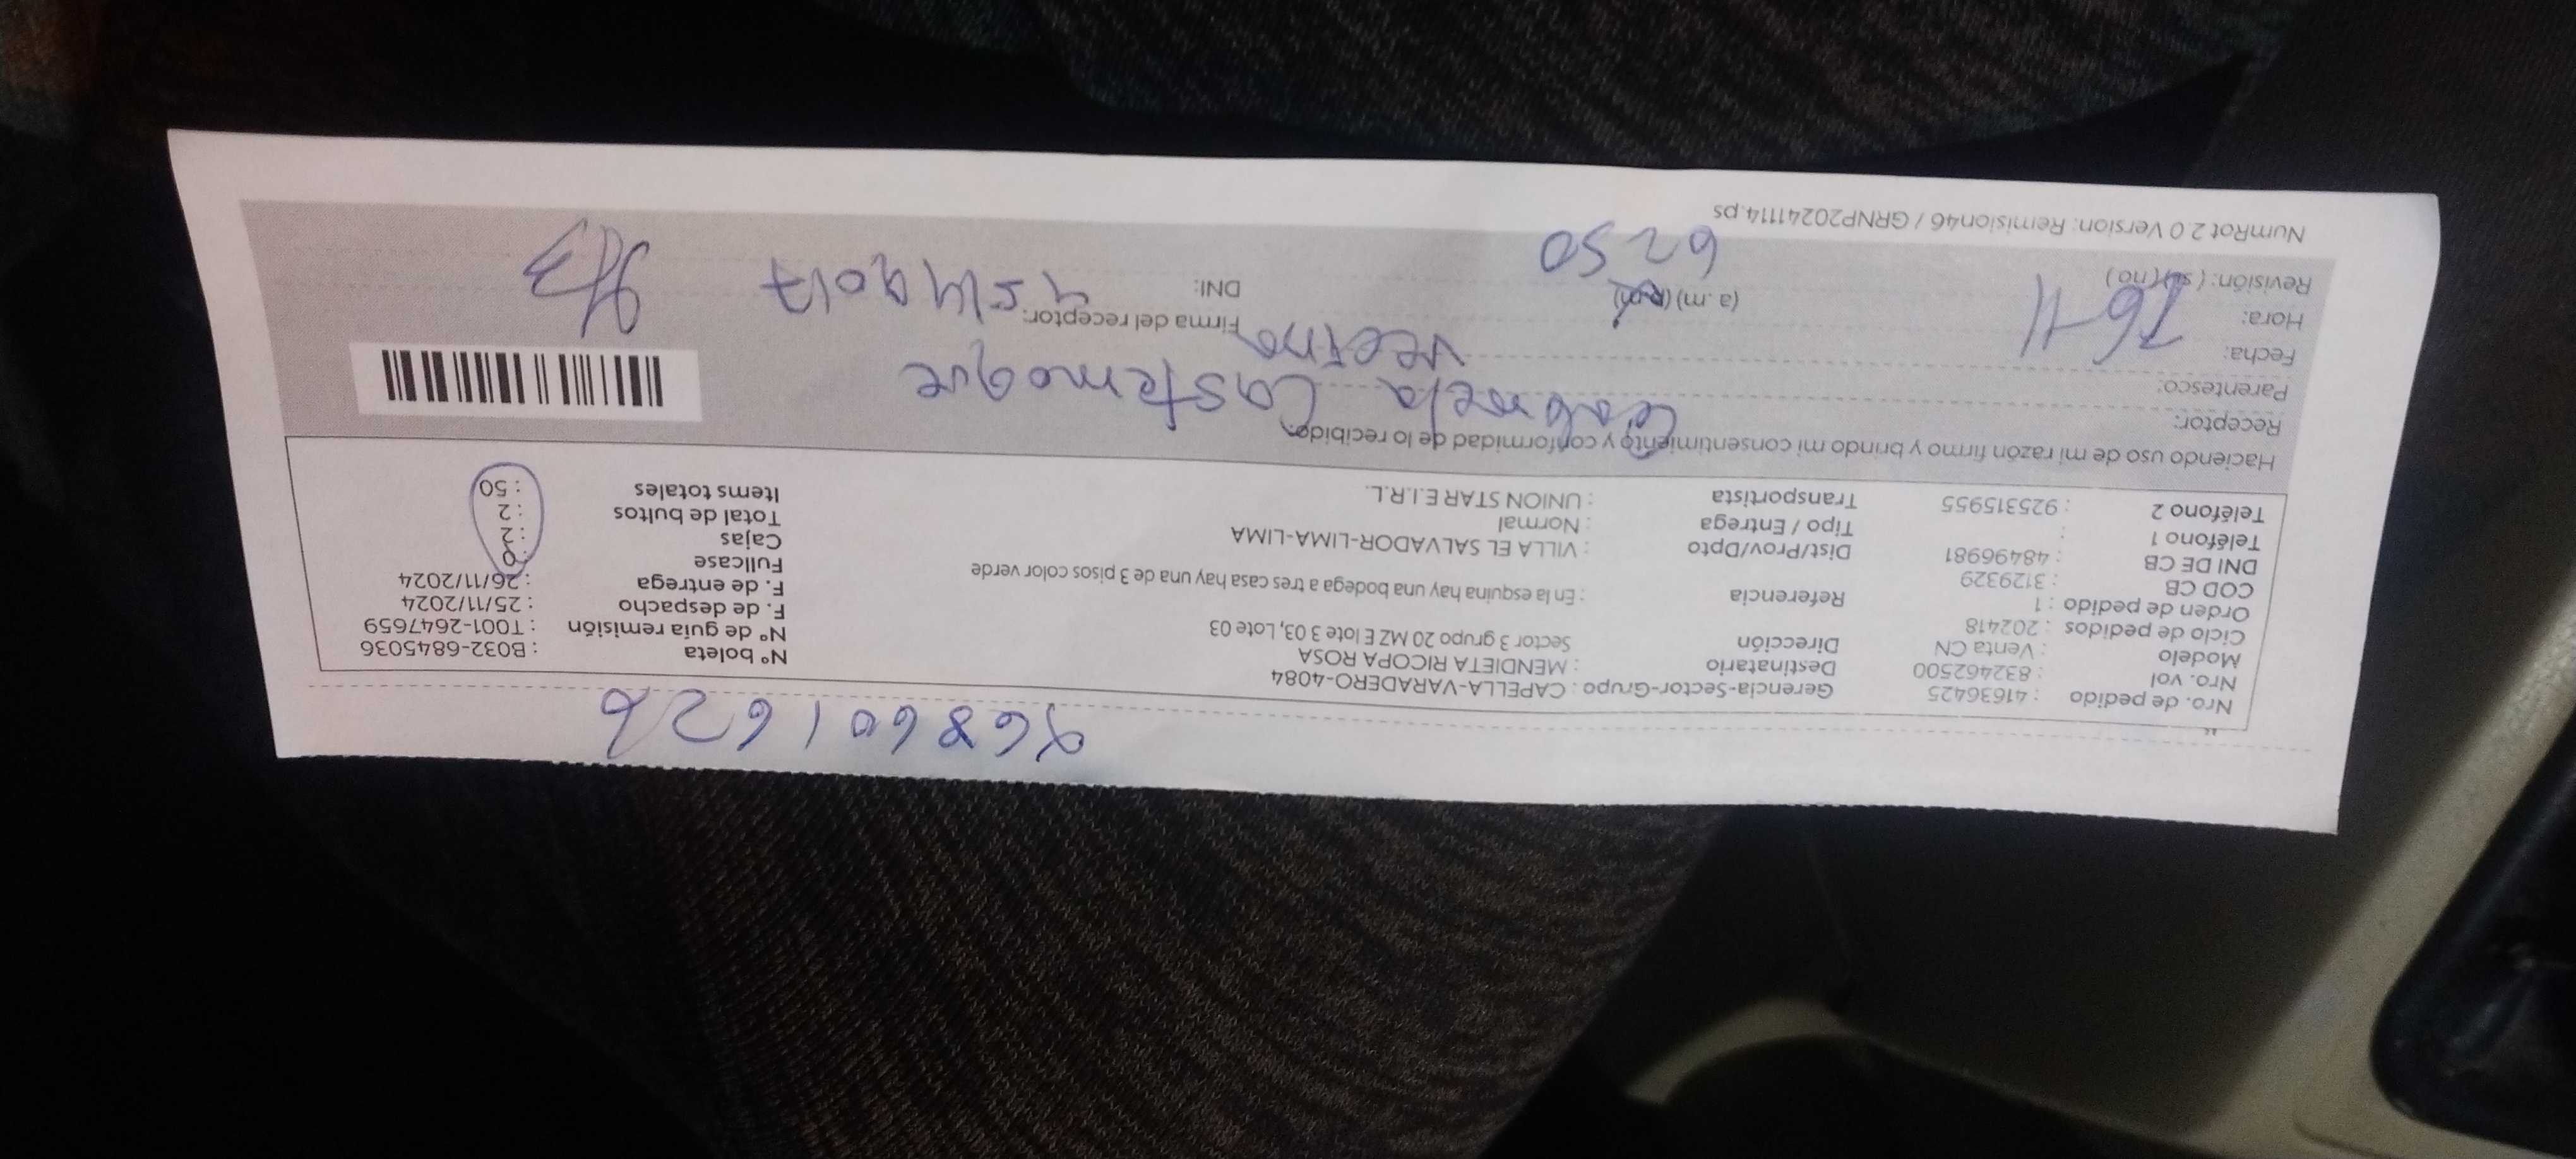 968601626
Nro. de pedido : 41636425
Nro. vol : 832462500
Modelo : Venta CN
Ciclo de pedidos : 202418
Orden de pedido : 1
COD CB : 3129329
DNI DE CB : 48496981
Teléfono 1 :
Teléfono 2 : 925315955
Gerencia-Sector-Grupo : CAPELLA-VARADERO-4084
Destinatario : MENDIETA RICOPA ROSA
Dirección Sector 3 grupo 20 MZ E lote 3 03, Lote 03
Referencia : En la esquina hay una bodega a tres casa hay una de 3 pisos color verde
Dist/Prov/Dpto : VILLA EL SALVADOR-LIMA-LIMA
Tipo / Entrega : Normal
Transportista : UNION STAR E.I.R.L.
N° boleta : B032-6845036
N° de guía remisión : T001-2647659
F. de despacho : 25/11/2024
F. de entrega : 26/11/2024
Fullcase : 0
Cajas : 2
Total de bultos : 2
Items totales : 50
Haciendo uso de mi razón firmo y brindo mi consentimiento y conformidad de lo recibido.
Receptor: Castemaque
Parentesco: vecina
Fecha: 26-11
Hora: 6250 (a.m) (p.m)
Revisión: ( si ) ( no )
Firma del receptor:
DNI:
NumRot 2.0 Version: Remision46 / GRNP20241114.ps